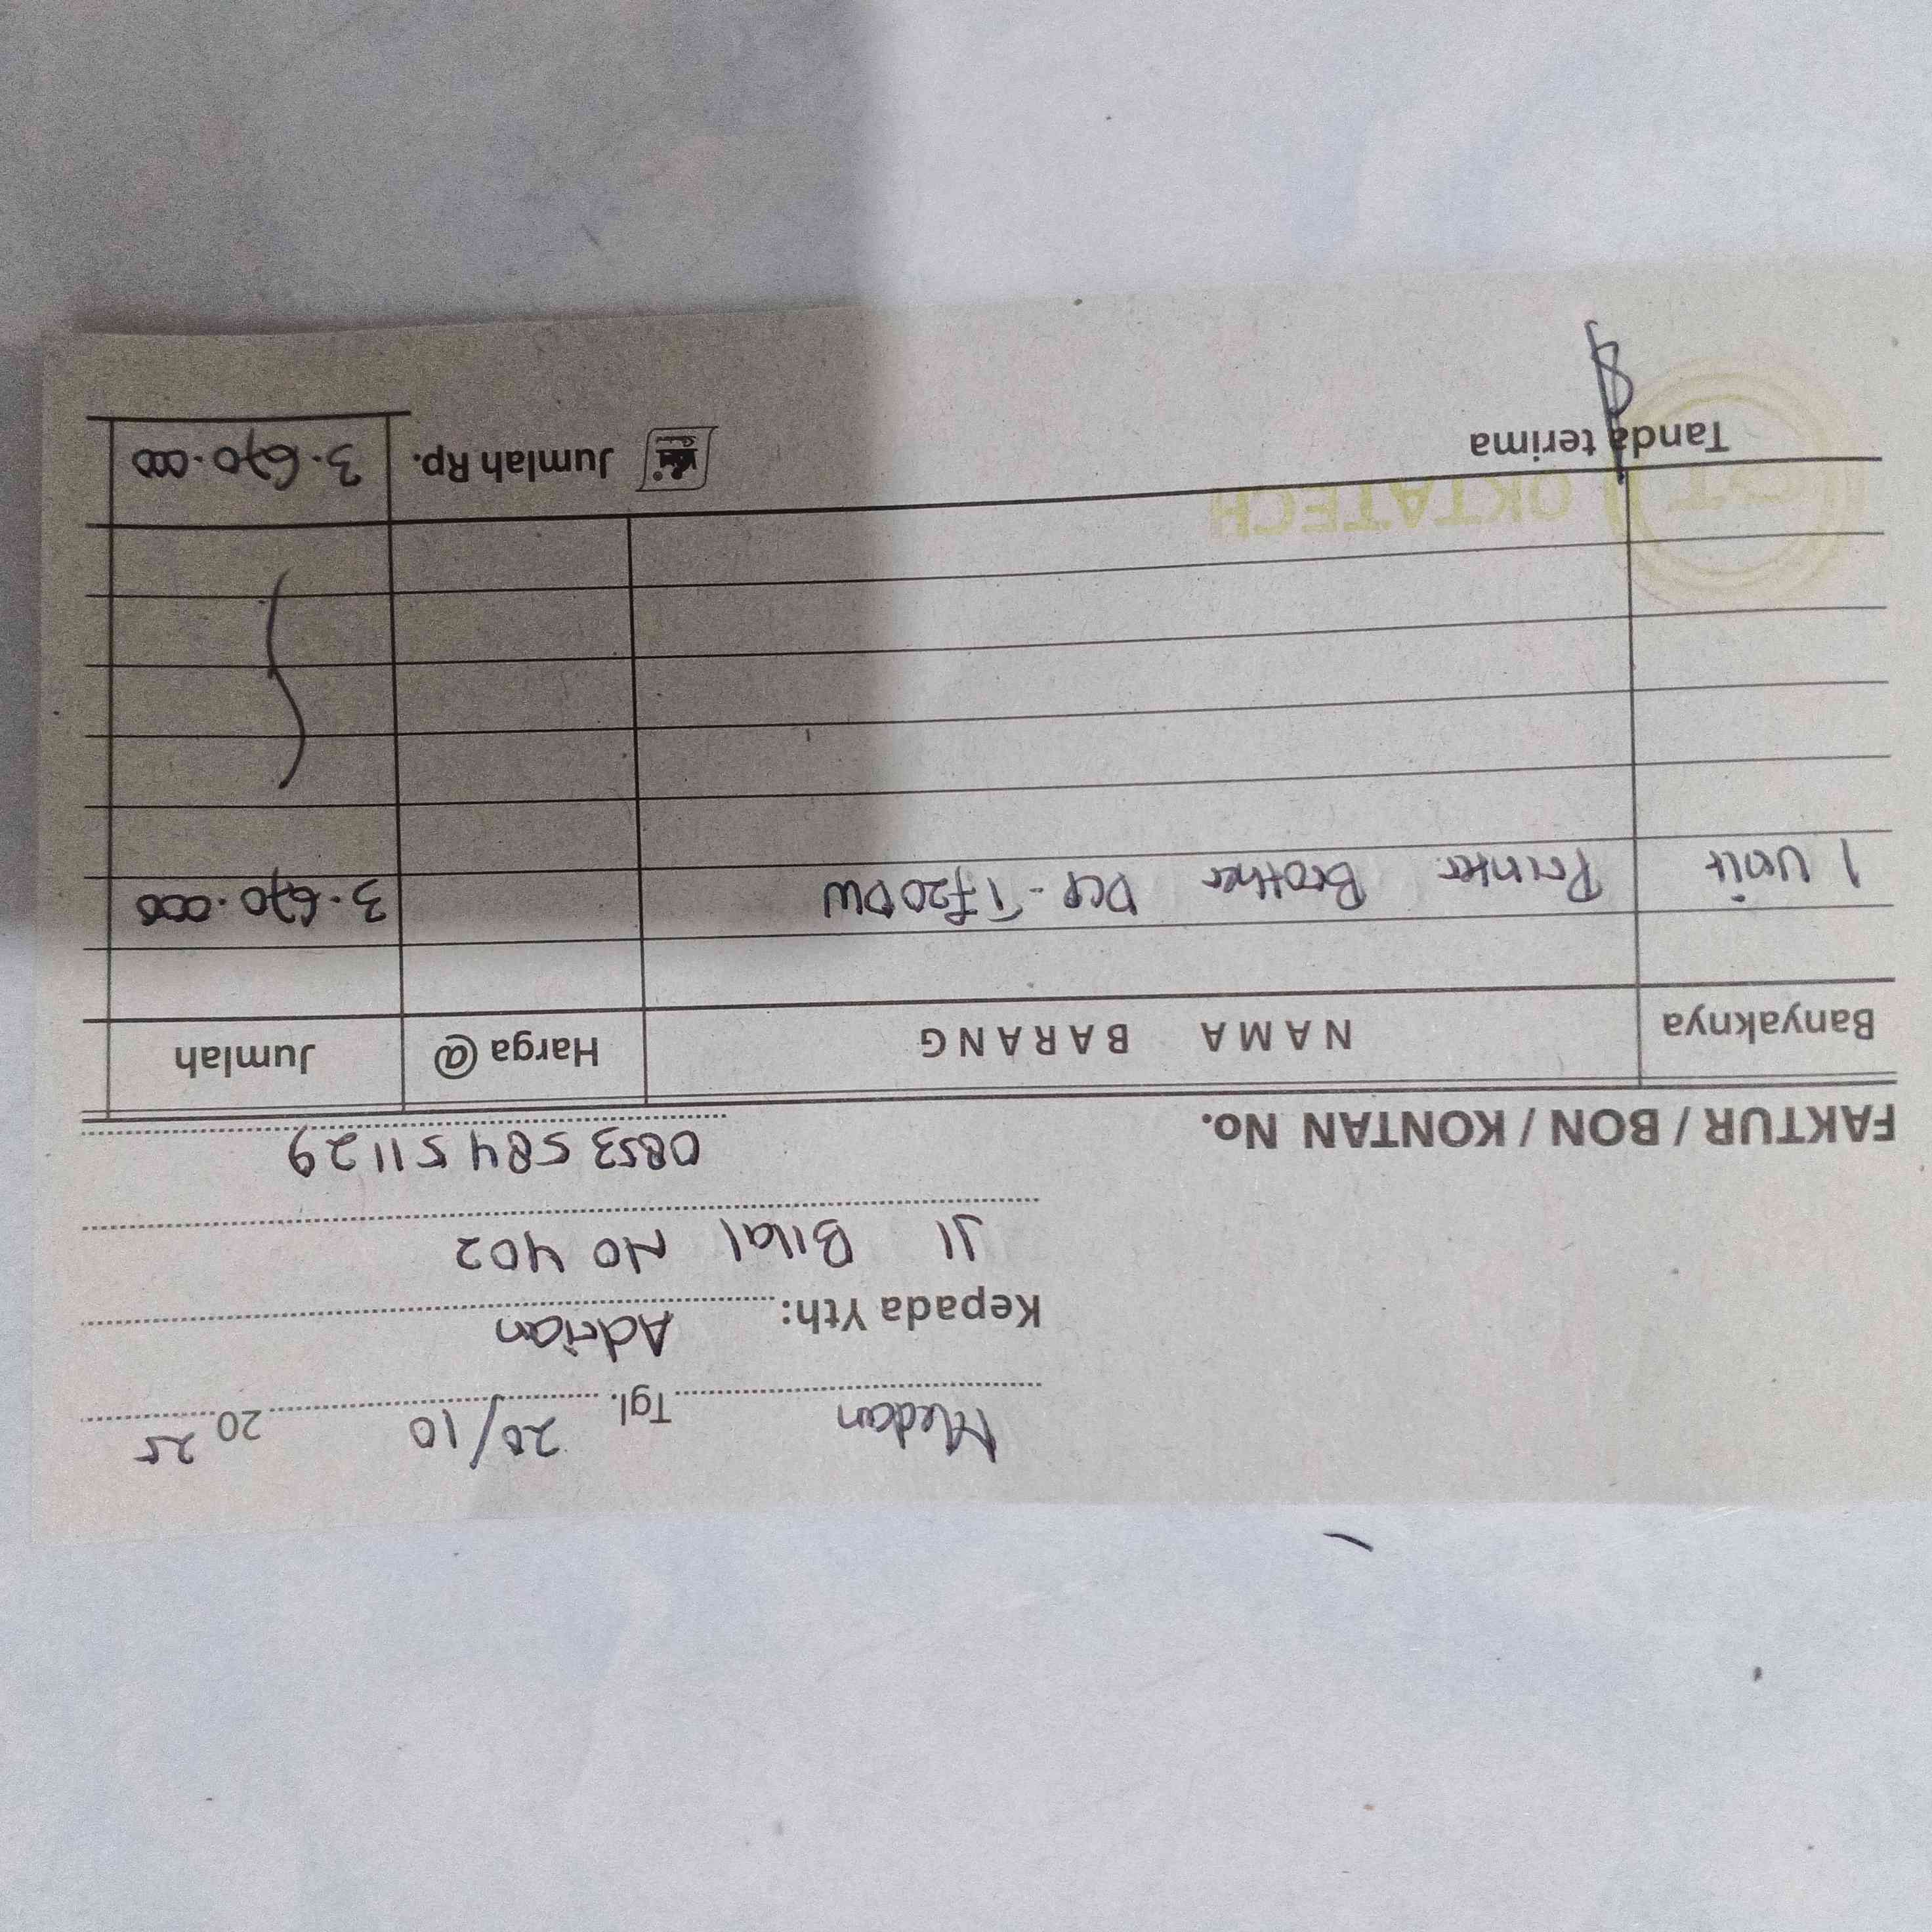 Medan Tgl. 20/10 20 25
Kepada Yth: Adrian
Jl Bilal No 402
FAKTUR / BON / KONTAN No. 0853 5845 1129
Banyaknya NAMA BARANG Harga @ Jumlah
1 Unit Printer Brother DCP-T720DW 3.670.000
Tanda terima Jumlah Rp. 3.670.000
OKTATECH